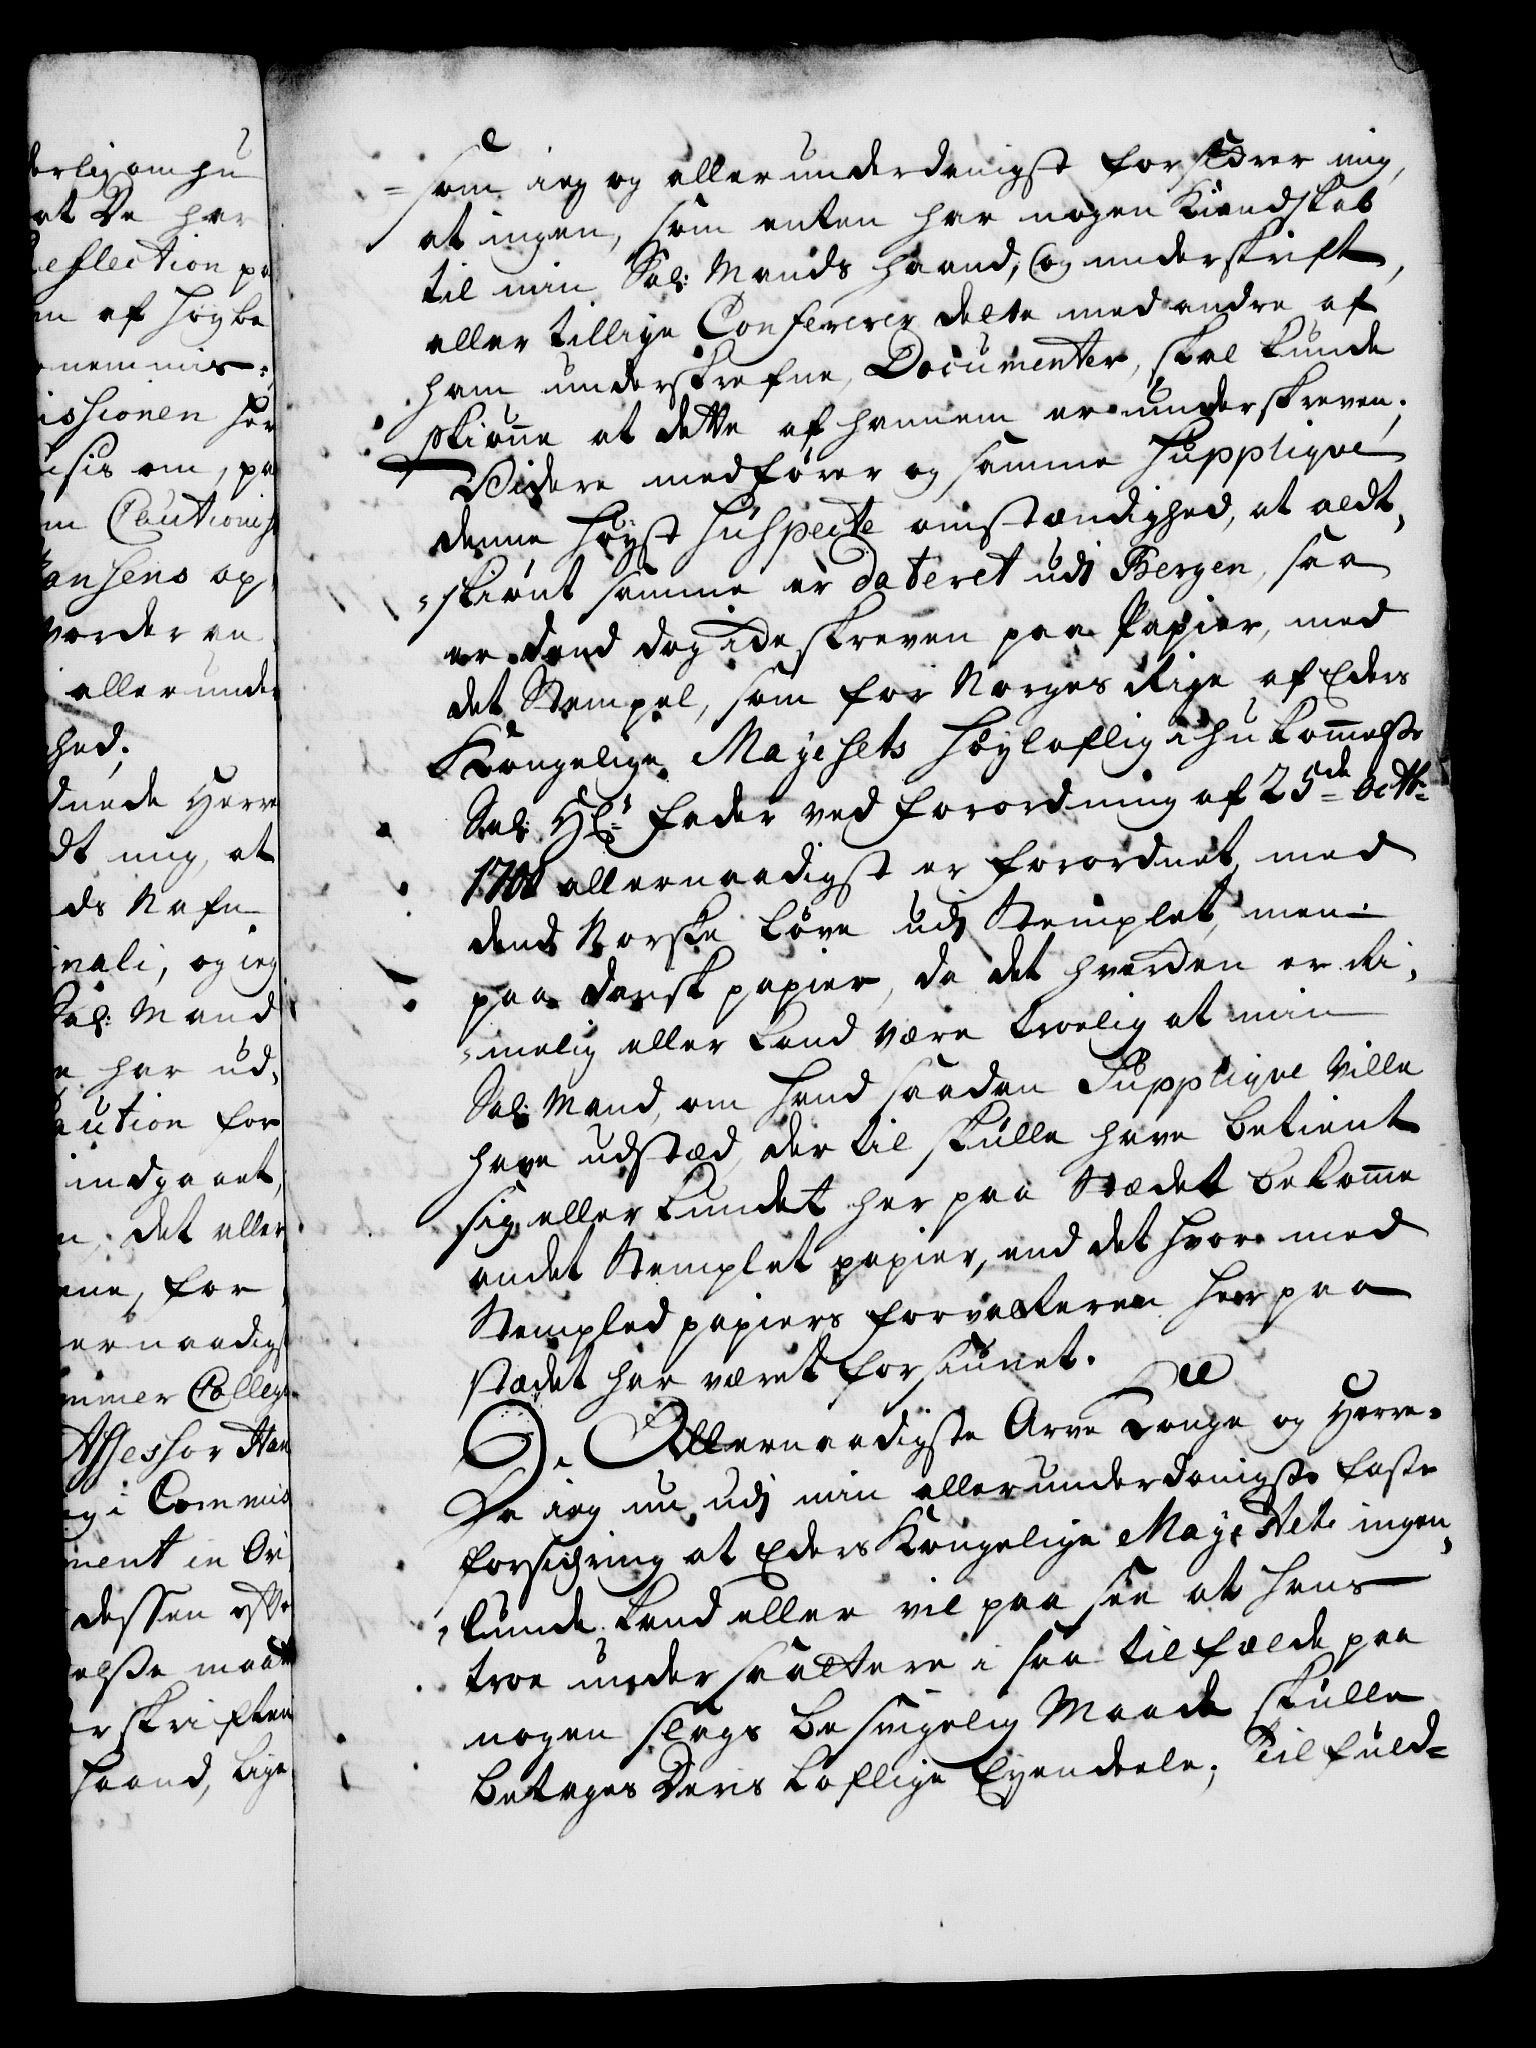 derlig om hu
at De har
Reflection pa
m af høybe
nemmis=
issionen her
isis om, pa
m Cautionis
Hansens op
vorder en
allerunder
hed;
dnede Herre
dt mig, at
ds Nafn
inali, og ieg
Sal: Mand
e har ud,
Caution for
indgaaet,
n, det aller
ne, for
ernaadigst
mmer Collegi
Assessor Han
g i Commis
ment in Ori
dessen ofte
elsse maatte
rskriften
haand, Lige
=som ieg og allerunderdanigst forsicrer mig,
at ingen, som enten har nogen Kiendskab
til min Sal: Mands haand, og underskrift,
eller tillige Confererer dette med andre af
ham underskrefne Documenter, skal kunde
skiønne at dette af hannem er underskreven;
Videre medfører og samme Supplique
denne høyst suspecte omstændighed, at aldt,
=skiønt samme er dateret udi Bergen, saa
er dend dog icke skreven paa Papier, med
det Stempel, som for Norges Rige af Eders
Kongelige Mayesets Høyloflig ihukommelse
Sal: Hr: Fader ved Forordning af 25de octb:
1708 allernaadigst er forordnet, med
dend Norske Løve udi Stemplet, men
paa dansk papier, da det hverden er Ri,
=melig eller kand være troelig at min
Sal: Mand, om hand saadan Supplique Ville
have udstæd, der til skulle have betient
sig, eller kundet her paa Stædet bekomme
andet Stemplet papier, end det hvor med
Stempled papiers forvalteren her paa
stædet har været forsiunet.
Allernaadigste Arve Konge og Herre.
Da ieg nu udi min allerunderdanigste faste
forsicring at Eders Kongelige Mayestets ingen,
=lunde kand eller vil paa see at hans
troe undersaattere i saa tilfælde paa
nogen slags besvigelig Maade skulle
betages Deris Loflige Eyendeele; Til fuld=